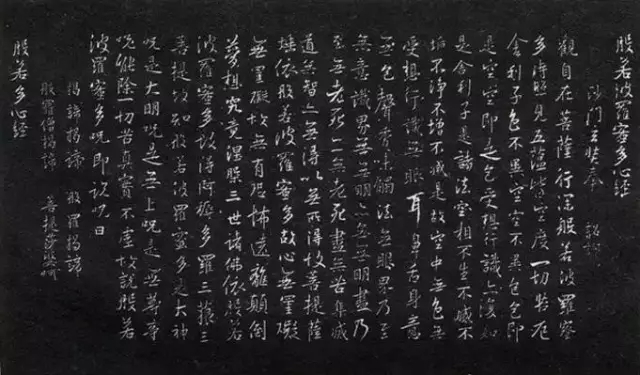 般若波羅蜜多心經
沙門玄奘奉 詔譯
觀自在菩薩行深般若波羅蜜
多時照見五蘊皆空度一切苦厄
舍利子色不異空空不異色色即
是空空即是色受想行識亦復如
是舍利子是諸法空相不生不滅不
垢不淨不增不減是故空中無色無
受想行識無眼耳鼻舌身意
無色聲香味觸法無眼界乃至
無意識界無無明亦無無明盡乃
至無老死亦無老死盡無苦集滅
道無智亦無得以無所得故菩提薩
埵依般若波羅蜜多故心無罣礙
無罣礙故無有恐怖遠離顛倒
夢想究竟涅槃三世諸佛依般若
波羅蜜多故得阿耨多羅三藐三
菩提故知般若波羅蜜多是大神
呪是大明呪是無上呪是無等等
呪能除一切苦真實不虛故說般若
波羅蜜多呪即說呪曰
揭諦揭諦 般羅揭諦
般羅僧揭諦 菩提莎婆訶
般若多心經